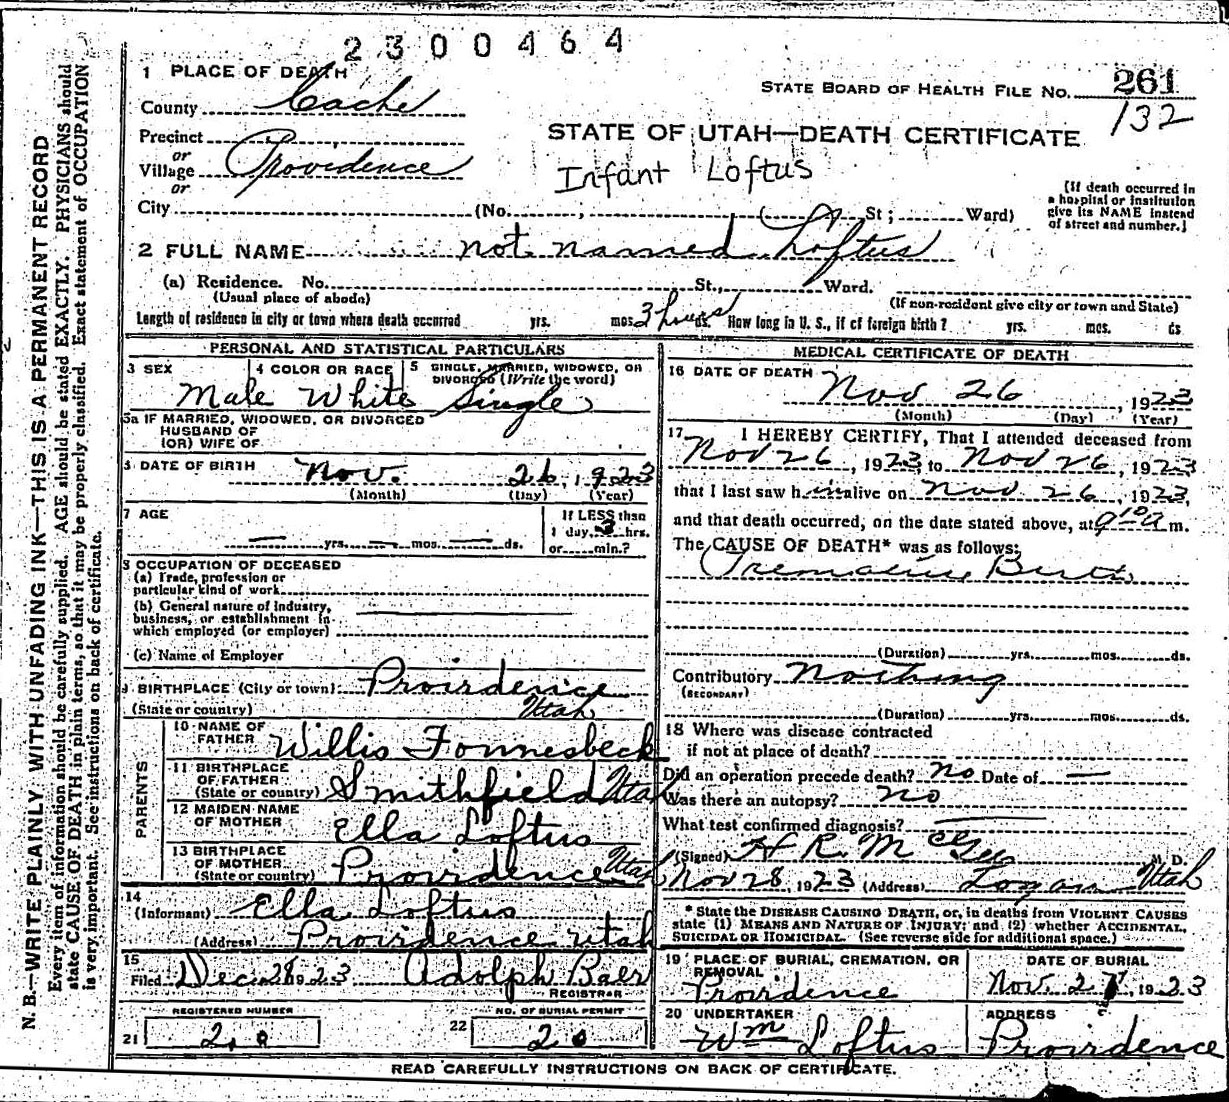 2300464
1 PLACE OF DEATH
STATE BOARD OF HEALTH FILE NO. 261
132
County Cache
STATE OF UTAH—DEATH CERTIFICATE
Precinct
or
Village Providence
or
Infant Loftus
[If death occurred in
a hospital or institution
give its NAME instead
of street and number.]
City (No. , St; Ward)
2 FULL NAME not named Loftus
(a) Residence. No. St., Ward.
(Usual place of abode)
(If non-resident give city or town and State)
Length of residence in city or town where death occurred yrs. mos. 3 hours ds. How long in U. S., if of foreign birth? yrs. mos. ds
PERSONAL AND STATISTICAL PARTICULARS
3 SEX
4 COLOR OR RACE
5 SINGLE, MARRIED, WIDOWED, OR
DIVORCED (Write the word)
Male White Single
5a IF MARRIED, WIDOWED, OR DIVORCED
HUSBAND OF
(OR) WIFE OF
6 DATE OF BIRTH Nov. 26, 1923
(Month) (Day) (Year)
7 AGE
If LESS than
1 day, 3 hrs.
— yrs. — mos. — ds.
or min.?
8 OCCUPATION OF DECEASED
(a) Trade, profession or
particular kind of work
(b) General nature of industry,
business, or establishment in
which employed (or employer)
(c) Name of Employer
9 BIRTHPLACE (City or town) Providence
(State or country) Utah
PARENTS
10 NAME OF
FATHER Willis Fonnesbeck
11 BIRTHPLACE
OF FATHER
(State or country) Smithfield Utah
12 MAIDEN NAME
OF MOTHER Ella Loftus
13 BIRTHPLACE
OF MOTHER
(State or country) Providence Utah
14
(Informant) Ella Loftus
(Address) Providence Utah
15
Filed Dec 28 1923 Adolph Baer
REGISTRAR
REGISTERED NUMBER
21 20
NO. OF BURIAL PERMIT
22 20
MEDICAL CERTIFICATE OF DEATH
16 DATE OF DEATH Nov 26, 1923
(Month) (Day) (Year)
17 I HEREBY CERTIFY, That I attended deceased from
Nov 26, 1923, to Nov 26, 1923
that I last saw him alive on Nov 26, 1923,
and that death occurred, on the date stated above, at 9 10 a m.
The CAUSE OF DEATH* was as follows:
Premature Birth
(Duration) yrs. mos. ds.
Contributory Nothing
(SECONDARY)
(Duration) yrs. mos. ds.
18 Where was disease contracted
if not at place of death?
Did an operation precede death? no Date of —
Was there an autopsy? no
What test confirmed diagnosis?
(Signed) H R McGee M. D.
Nov 28, 1923 (Address) Logan Utah
* State the DISEASE CAUSING DEATH, or, in deaths from VIOLENT CAUSES
state (1) MEANS AND NATURE OF INJURY; and (2) whether ACCIDENTAL,
SUICIDAL OR HOMICIDAL. (See reverse side for additional space.)
19 PLACE OF BURIAL, CREMATION, OR
REMOVAL
Providence
DATE OF BURIAL
Nov. 27, 1923
20 UNDERTAKER
Wm Loftus
ADDRESS
Providence
READ CAREFULLY INSTRUCTIONS ON BACK OF CERTIFICATE.
N. B.—WRITE PLAINLY, WITH UNFADING INK—THIS IS A PERMANENT RECORD
Every item of information should be carefully supplied. AGE should be stated EXACTLY. PHYSICIANS should
state CAUSE OF DEATH in plain terms, so that it may be properly classified. Exact statement of OCCUPATION
is very important. See instructions on back of certificate.